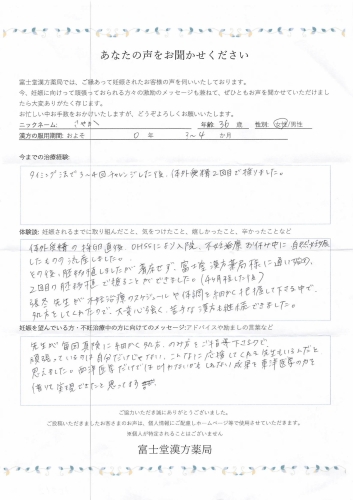 あなたの声をお聞かせください
富士堂漢方薬局では、ご縁あって妊娠されたお客様の声を伺いいたしております。
今、妊娠に向けって頑張っておられる方々の激励のメッセージも兼ねて、ぜひともお声を聞かせていただけました
ら大変ありがたく存じます。
お忙しい中お手数をおかけいたしますが、どうぞよろしくお願いします。
ニックネーム: 年齢: 36 歳 性別: 女性/男性
漢方の服用期間: およそ 0 年 3~4 か月
今までの治療経験:
タイミング法で3~4回チャレンジした後、体外受精2回目で授りました。
体験談: 妊娠されるまでに取り組んだこと、気をつけたこと、嬉しかったこと、辛かったことなど
体外受精の採卵直後、OHSSにより入院、不妊治療お休み中に自然妊娠
したものの流産しました。
その後、胚移植しましたが着床せず、富士堂漢方薬局様に通い始め、
2回目の胚移植で授ることができました。(4ヶ月程した後)
張先生が不妊治療のスケジュールや体調を細かく把握して下さる中で、
処方をしてくれたので、大変心強く、苦手な漢方も継続できました。
妊娠を望んでいる方・不妊治療中の方に向けてのメッセージ:アドバイスや励ましの言葉など
先生が毎回真摯に細かく処方、のみ方をご指導下さるので、
頑張っているのは自分だけじゃない、こんなに応援してくれる先生もいるんだと
思えました。西洋医学だけでは叶わないかもしれない成果を東洋医学の力を
借りて実現できたと思ってます
ご協力いただき誠にありがとうございました。
ご投稿いただきましたお客さまのお声は、個人情報にご配慮しホームページ等で使用させていただきます。
※個人が特定されることはございません
富士堂漢方薬局